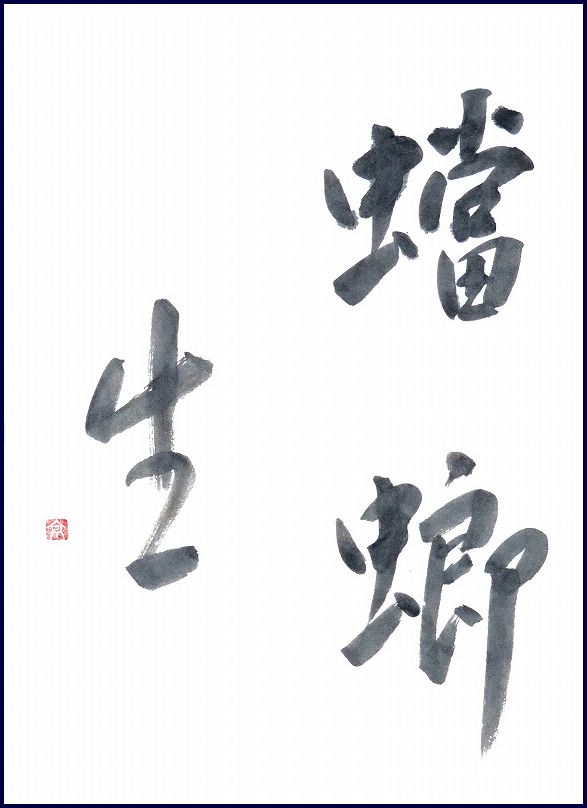 蟷螂
生